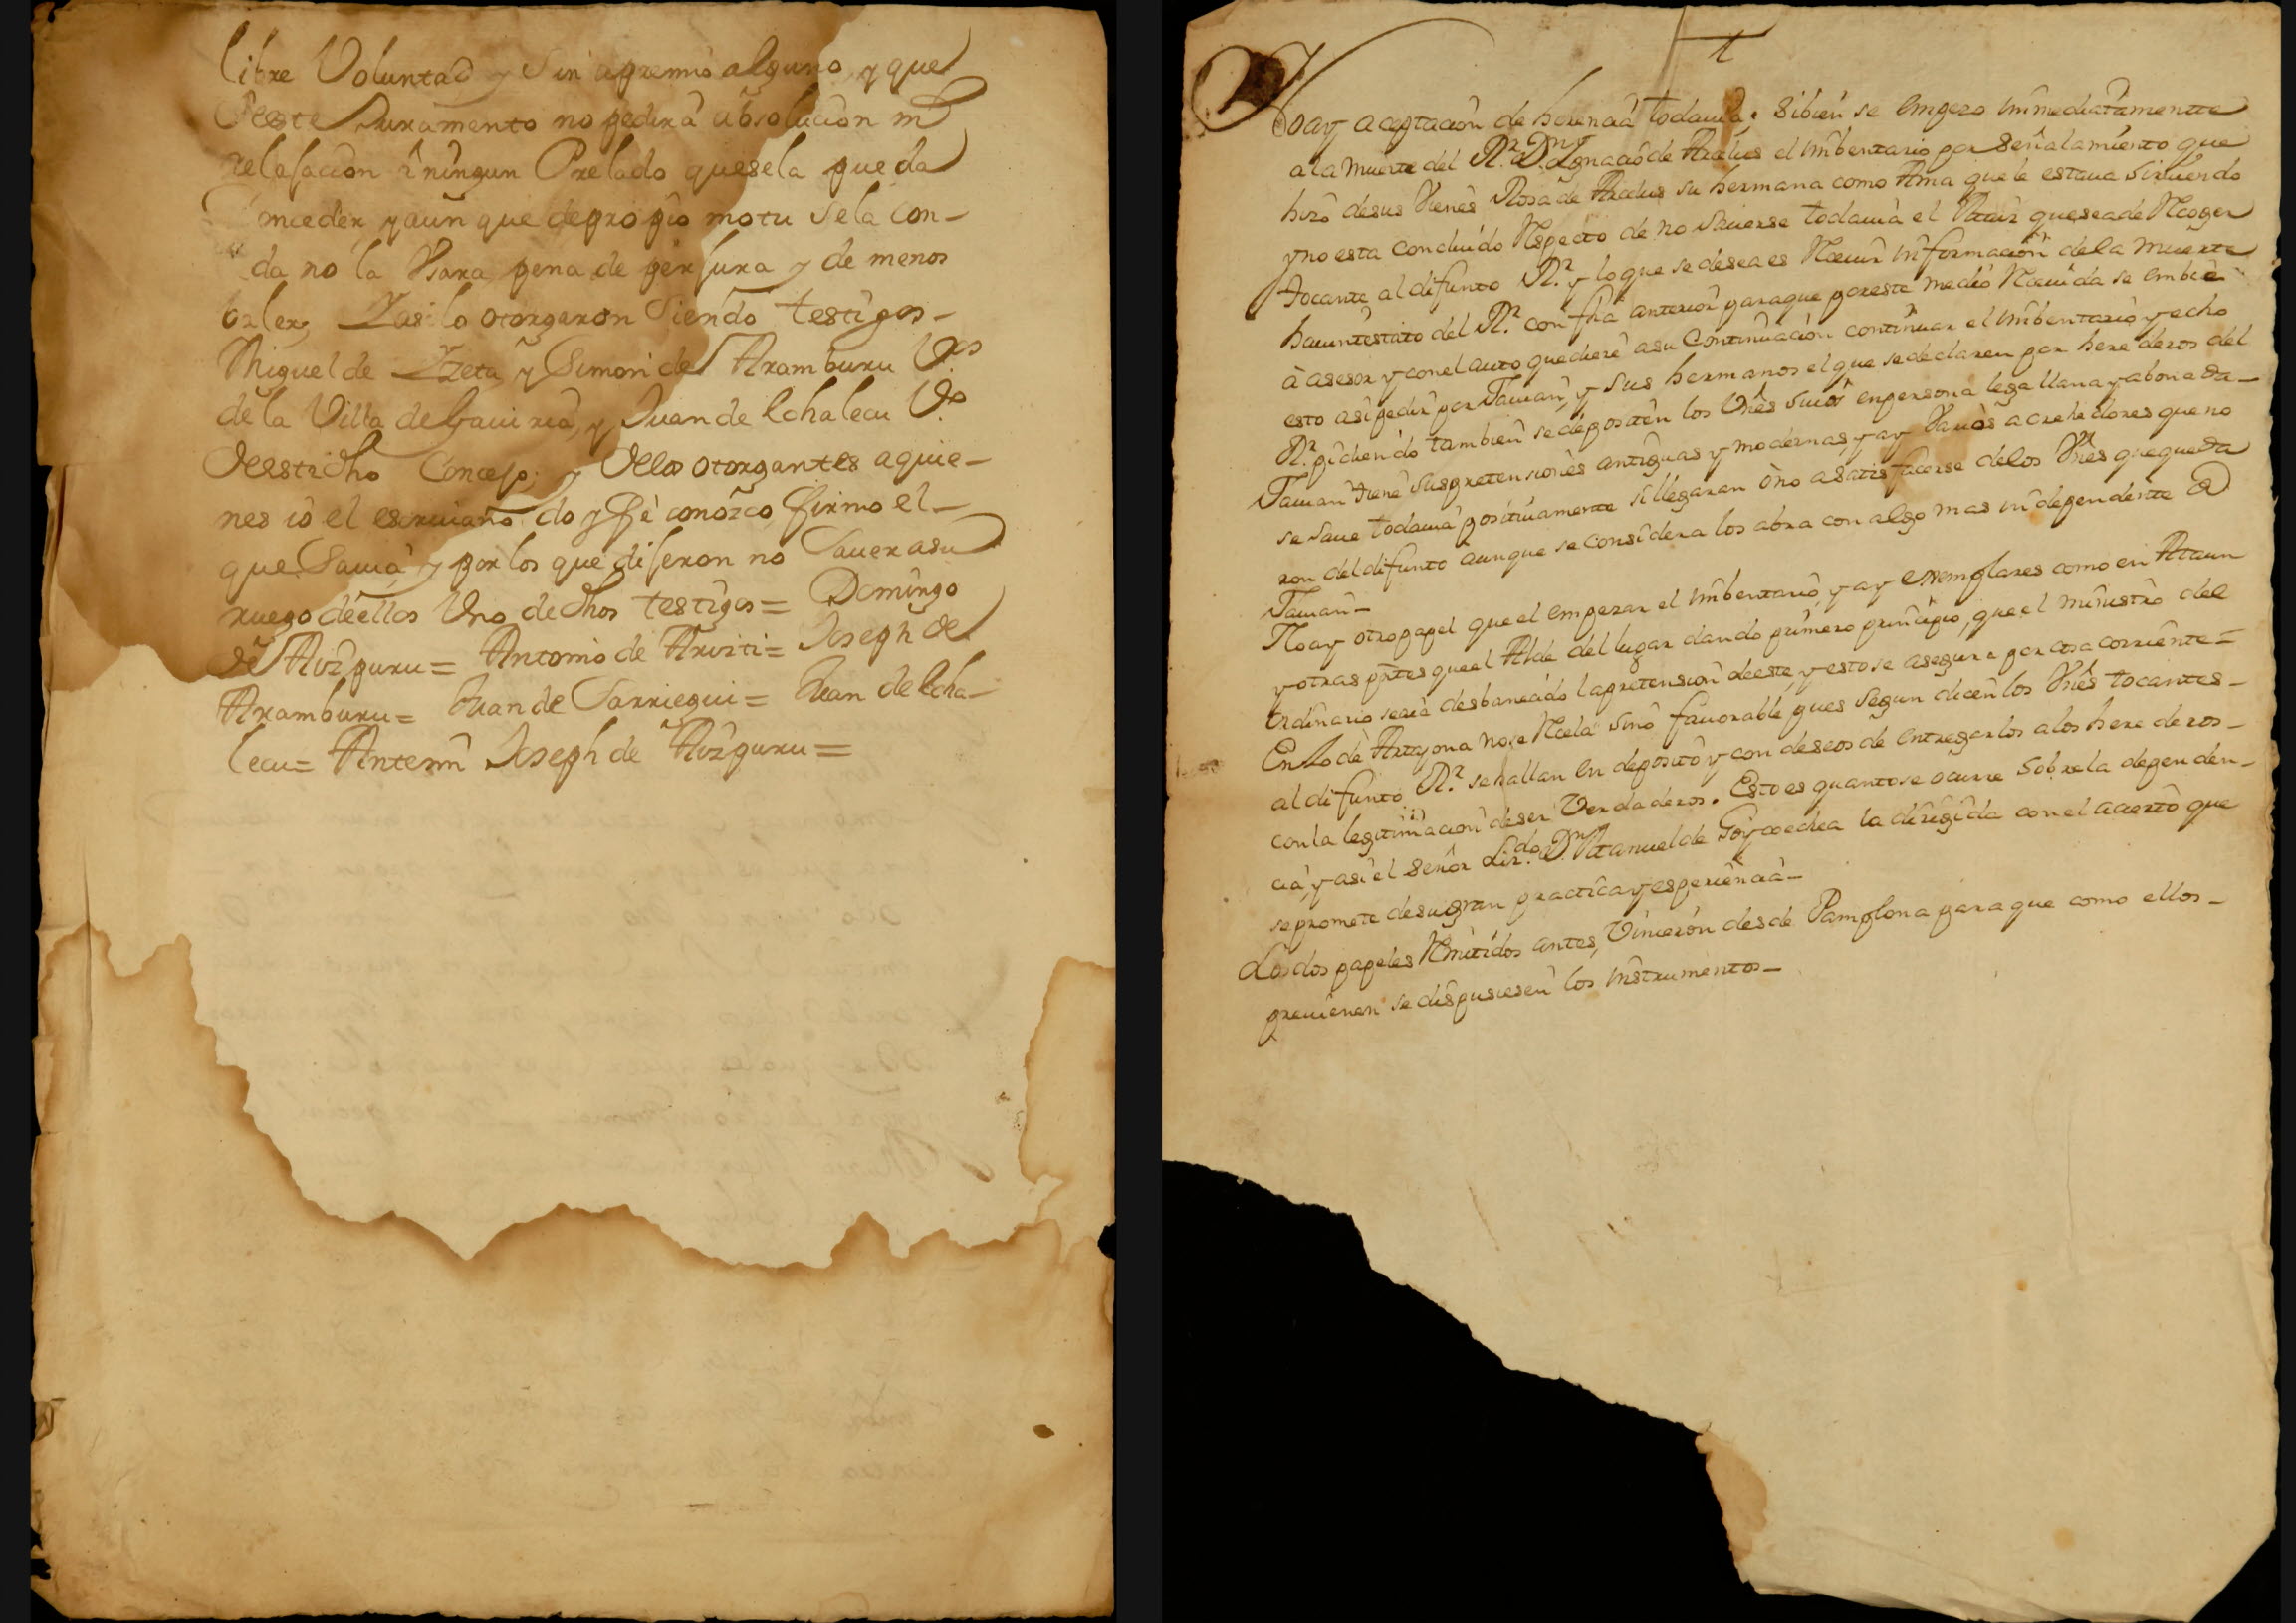 libre Voluntad y Sin apremio alguno, y que
deeste Juramento no pedira absolucion ni
relajacion à ningun Prelado quesela pueda
Conceder, y aun que depropio motu se la con-
da no la Usara pena de perjura y de menos
baler, Yasi lo otorgaron Siendo testigos-
Miguel de Yzeta, y Simon de Aramburu Vos
de la Villa de Gaviria, y Juan de Echalecu Vo
deestedho Concejo; y delos otorgantes aquie-
nes io el escrivano doy fè conozco firmo el-
que Savia, y por los que dijeron no Saver asu
ruego deellos Uno dedhos testigos= Domingo
de Aizpuru= Antonio de Arizti= Joseph de
Aramburu= Juan de Sarriegui= Juan de Echa-
lecu= Antemi Joseph de Aizpuru=
Noay aceptacion de herencia todavia. Sibien se empezo immediatamentte
ala muerte del Rr. Dn. Ygnacio de el imbentario por señalamiento que
hizo desus Vienes Rosa de su hermana como Ama que le estava Sirviendo
yno esta concluido Respecto de no Saverse todavia el queseade Recoger
tocante al difunto Rr. y loque se desea es Recivir informacion dela muerte
havintestato del Rr. con fha anterior paraque poreste medio Recivida se embie
à asesor y conel auto quediere asu Continuacion continuar el imbentario, y echo
esto asi pedir por y Sus hermanos el que sedeclaren por herederos del
Rr. pidiendo tambien sedepositen los Vnes Suios enpersona lega llana yabonada-
tiene suspretensiones antiguas y modernas, y ay Varios acrehedores queno
se save todavia positivamente sillegaran òno asatisfacerse delos Vnes quequeda
ron deldifunto aunque seconsidera los abra con algo mas independente de
Noay otropapel queel empezar el imbentario, y ay exemplares como en Ataun
y otras ptes queel Alde del lugar dando primero principio, queel ministro del
Ordinario seria desbanecido lapretension deeste y estose asegura por cosa corriente=
En Lode Artajona nose Recela sino favorable, pues Segun dicen los Vnes tocantes-
al difunto Rr. sehallan en deposito y con deseos de entregarlos alos herederos-
conla legitimacion deser Verdaderos. Esto es quantose ocurre Sobrela dependen-
cia, y asi el Señor Lizdo. Dn. Manuel de Goycoechea la dirigida conel acierto que
sepromete desugran practica y esperiencia-
Losdos papeles Remitidos antes, Vinieron desde Pamplona para que como ellos-
previenen se dispusiesen los instrumentos-